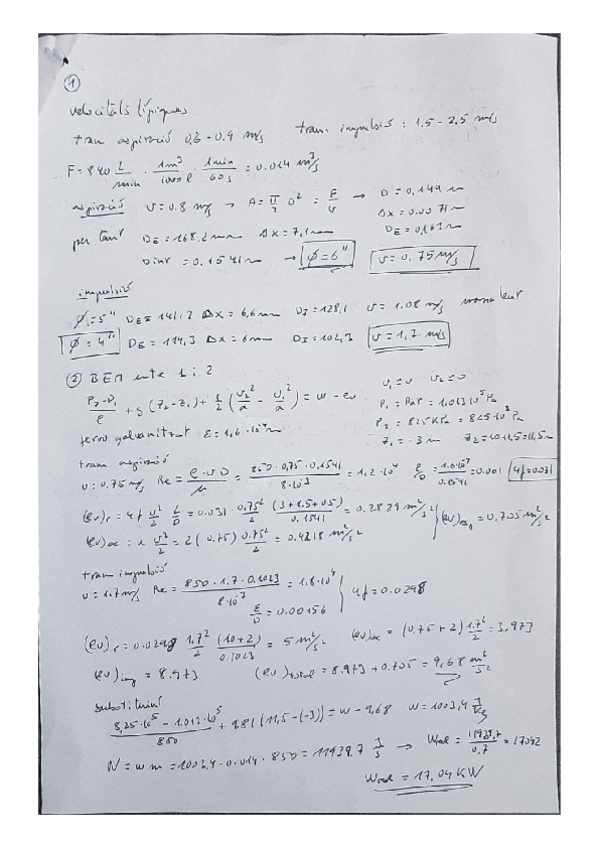 ①
velocitats típiques
tram aspiració 0,6 - 0.9 m/s tram impulsió : 1.5 - 2,5 m/s
F = 840 L/min · 1m³/1000 l · 1min/60s = 0.014 m³/s
aspiració v = 0.8 m/s → A = π/4 D² = F/v → D = 0,149 m
Δx = 0.0071 m
per tant DE = 168.2 mm Δx = 7,1 mm DE = 0,163 m
Dint = 0.1541 m → φ = 6" v = 0.75 m/s
impulsió
φ = 5" DE = 141.3 Δx = 6,6 mm DI = 128,1 v = 1.08 m/s massa lent
φ = 4" DE = 114,3 Δx = 6 mm DI = 102,3 v = 1,7 m/s
② BEM entre 1 i 2
(P2 - P1)/ρ + g (z2 - z1) + 1/2 (v2²/α - v1²/α) = w - ev
v1 ≈ 0 v2 ≈ 0
P1 = Patm = 1.013 10⁵ Pa
P2 = 825 KPa = 825·10³ Pa
z1 = -3 m z2 = 10+1,5 = 11,5 m
ferro galvanitzat ε = 1,6 · 10⁻⁴ m
tram aspiració
v = 0.75 m/s Re = ρ·v·D/μ = 850 · 0,75 · 0.1541/8·10⁻³ = 1.2·10⁴ ε/D = 1.6·10⁻⁴/0.1541 = 0.001 4f = 0.031
(ev)r = 4f v²/2 L/D = 0.031 · 0.75²/2 (3+1.5+0.5)/0.1541 = 0.2829 m²/s²
(ev)ac = k v²/2 = 2 (0.75) 0.75²/2 = 0.4218 m²/s² (ev)asp = 0,705 m²/s²
tram impulsió
v = 1.7 m/s Re = 850 · 1.7 · 0.1023/8·10⁻³ = 1.8·10⁴
ε/D = 0.00156 4f = 0.0298
(ev)r = 0.0298 1.7²/2 (10+2)/0.1023 = 5 m²/s² (ev)ac = (0,75 + 2) 1.7²/2 = 3,973
(ev)imp = 8.973 (ev)total = 8.973 + 0.705 = 9,68 m²/s²
substituint
(8,25·10⁵ - 1.013·10⁵)/850 + 9.81 (11,5 - (-3)) = w - 9,68 w = 1003,4 J/Kg
W = w m = 1003,4 · 0.014 · 850 = 11939.7 J/s → Wreal = 11939,7/0.7 = 17042
Wreal = 17,04 KW